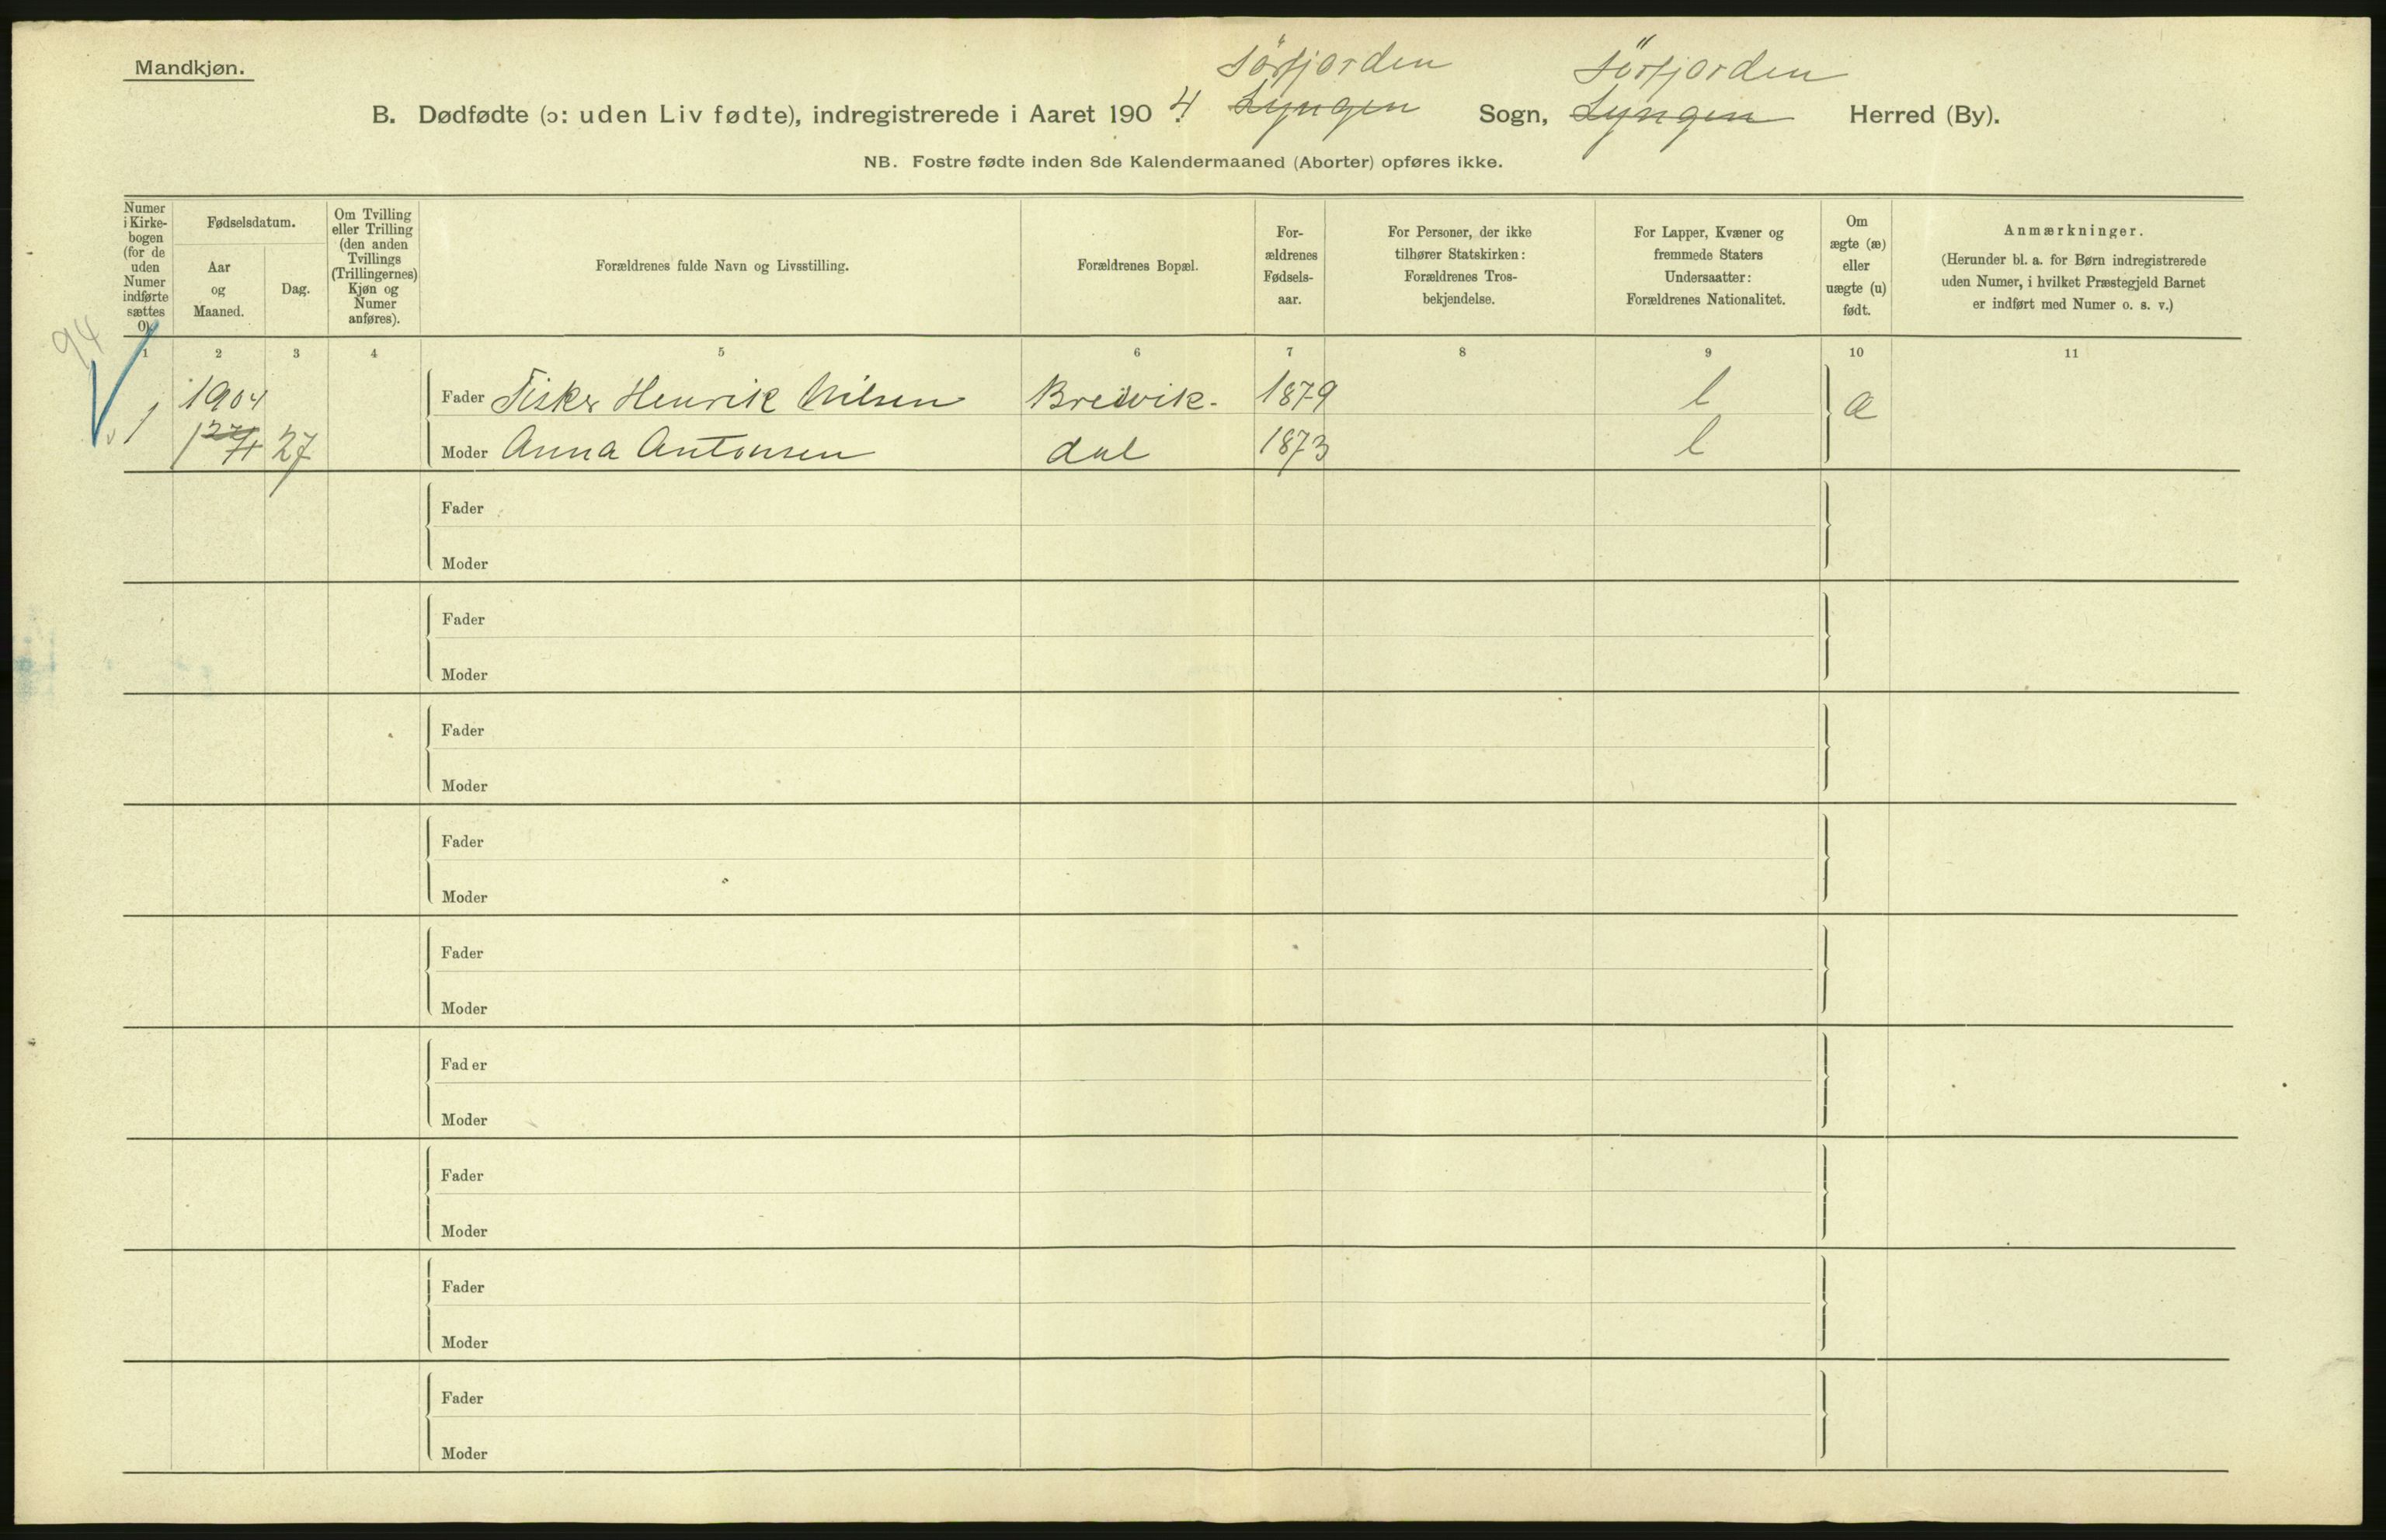 Mandkjøn.
Sörfjorden Sörfjorden
B. Dødfødte (ɔ: uden Liv fødte), indregistrerede i Aaret 1904. Lyngen Sogn, Lyngen Herred (By).
NB. Fostre fødte inden 8de Kalendermaaned (Aborter) opføres ikke.
Numer
i Kirke-
bogen
(for de
uden
Numer
indførte
sættes
0).
Fødselsdatum.
Aar
og
Maaned.
Dag.
Om Tvilling
eller Trilling
(den anden
Tvillings
(Trillingernes)
Kjøn og
Numer
anføres).
Forældrenes fulde Navn og Livsstilling.
Forældrenes Bopæl.
For-
ældrenes
Fødsels-
aar.
For Personer, der ikke
tilhører Statskirken:
Forældrenes Tros-
bekjendelse.
For Lapper, Kvæner og
fremmede Staters
Undersaatter:
Forældrenes Nationalitet.
Om
ægte (æ)
eller
uægte (u)
født.
Anmærkninger.
(Herunder bl. a. for Børn indregistrerede
uden Numer, i hvilket Præstegjeld Barnet
er indført med Numer o. s. v.)
94
1 2 3 4 5 6 7 8 9 10 11
1 1904 Fader Fisker Henrik Nilsen Breivik- 1879 l æ
27 Moder Anna Antonsen dal 1873 l
Fader
Moder
Fader
Moder
Fader
Moder
Fader
Moder
Fader
Moder
Fader
Moder
Fader
Moder
Fader
Moder
Fader
Moder